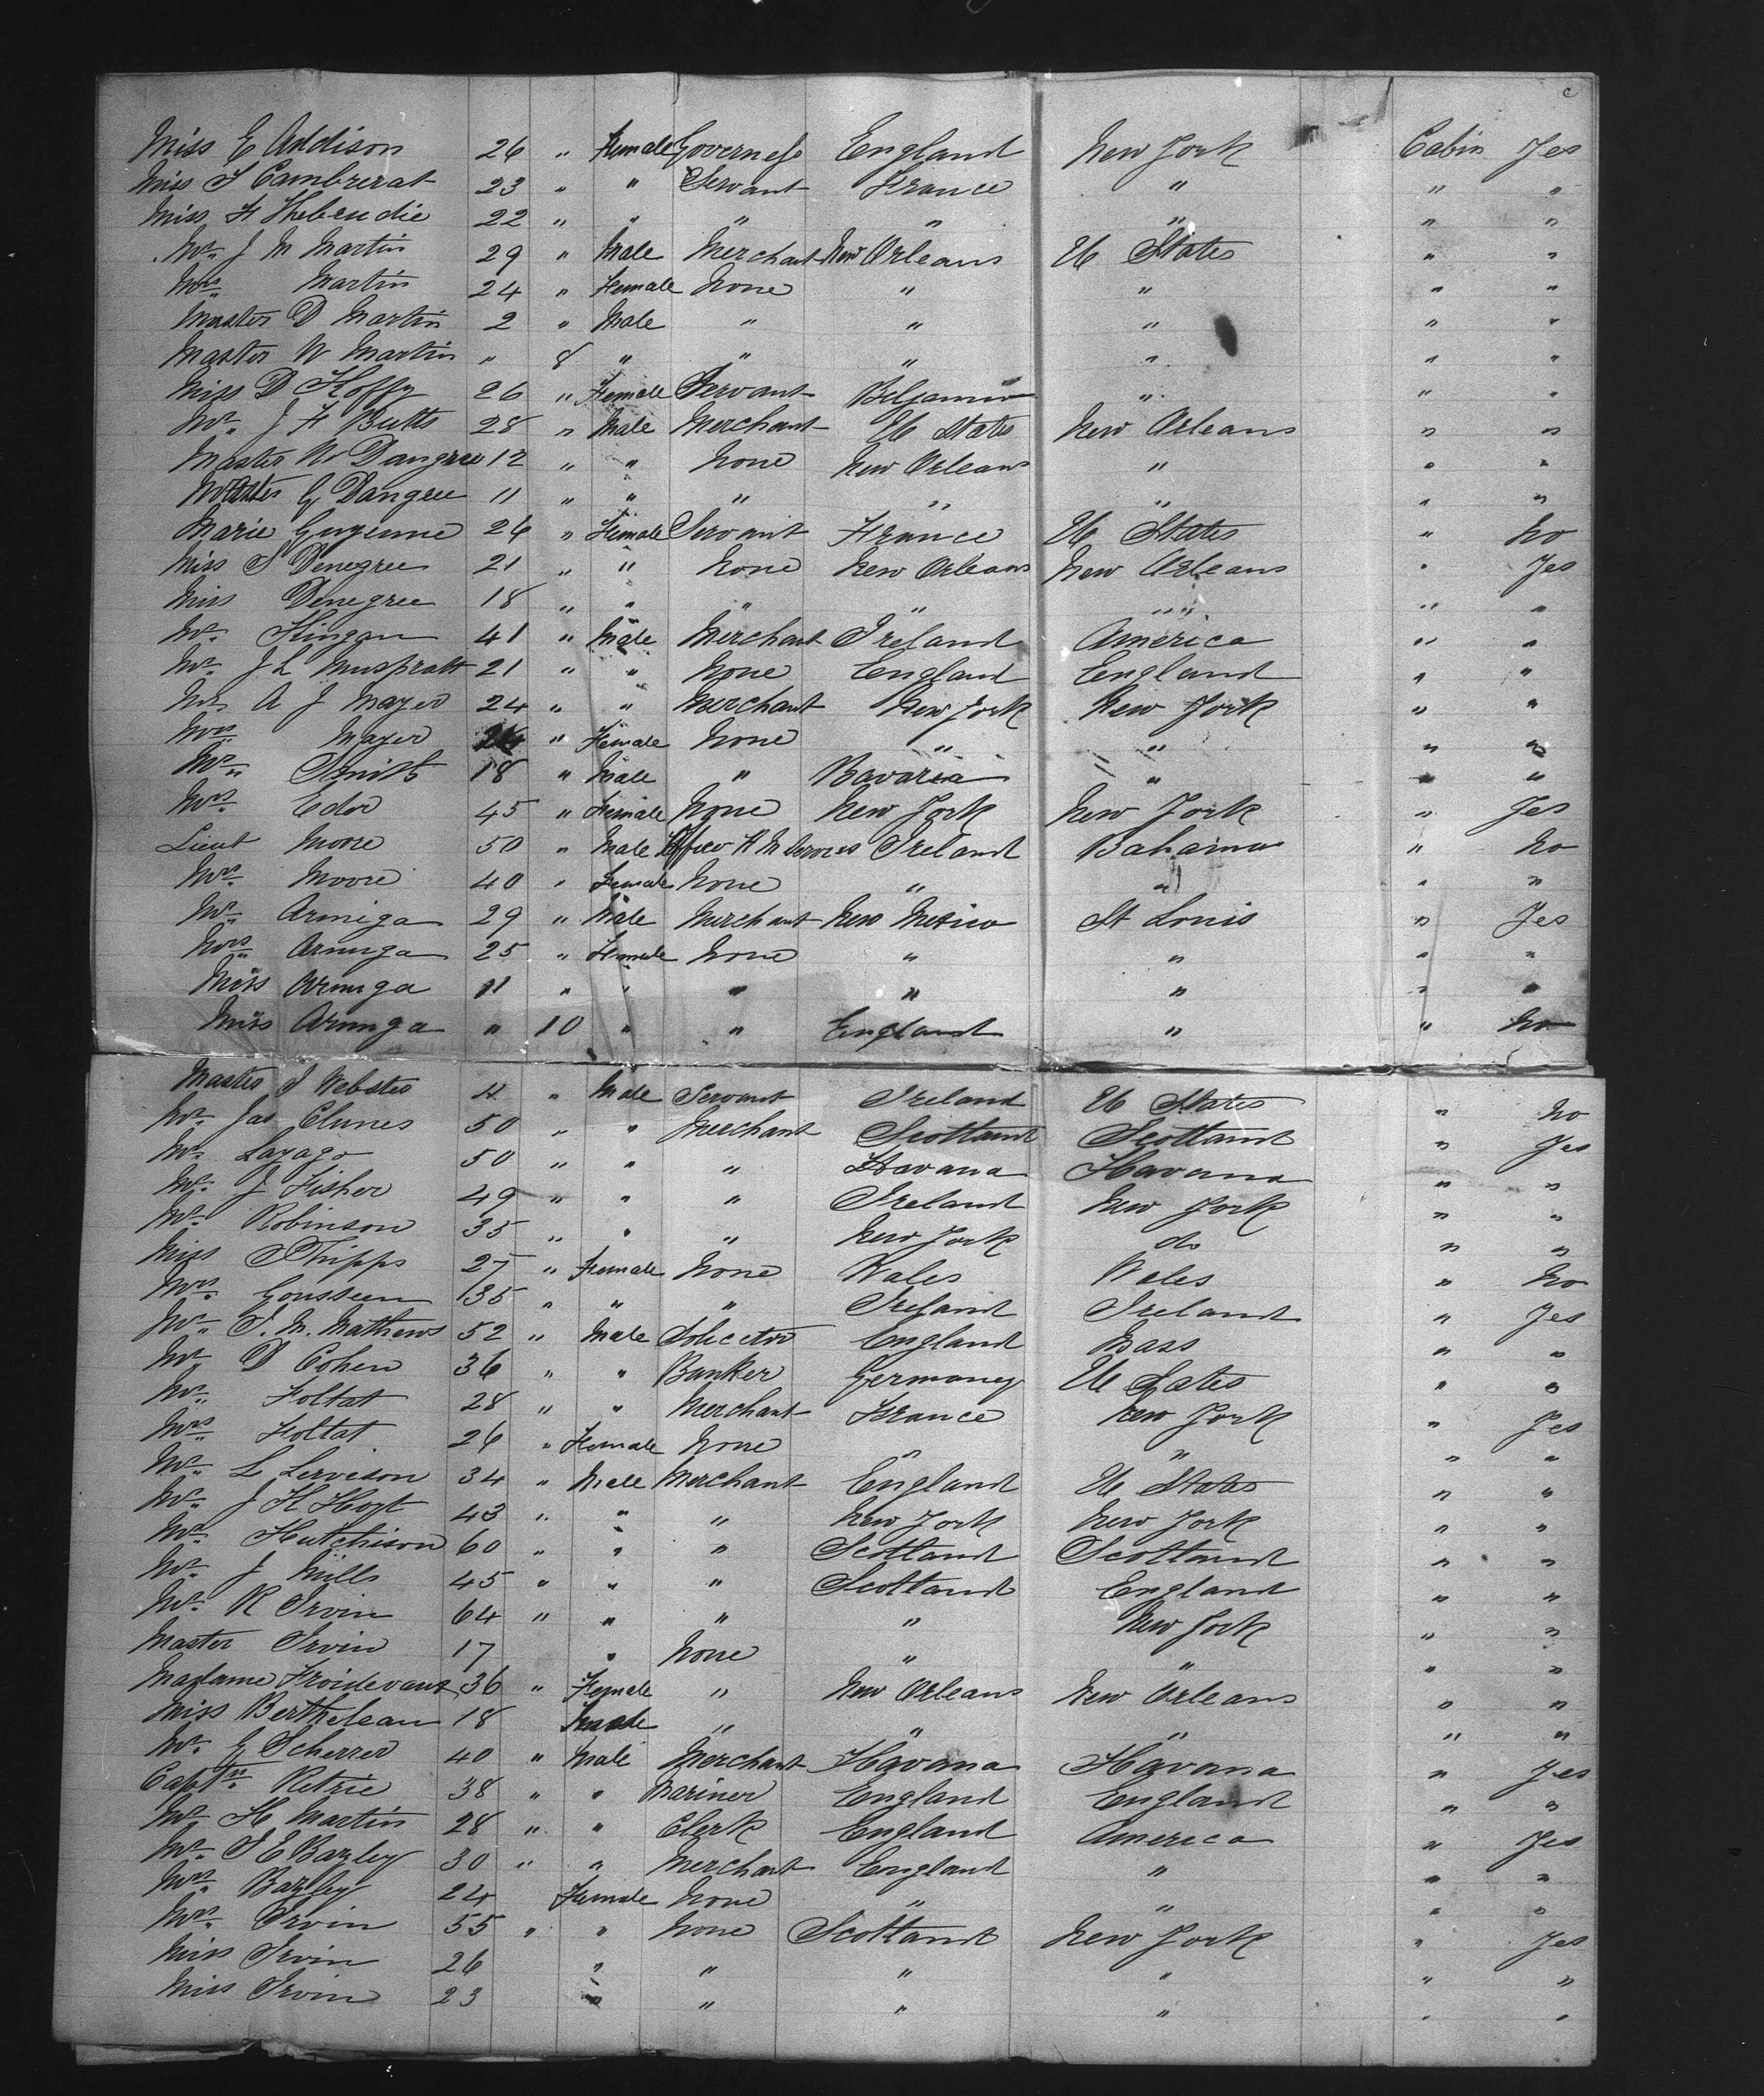 Miss E Addison 26 " Female Governess England New York Cabin Yes
Miss S Cambrerat 23 " " Servant France " " "
Miss F Thebeudie 22 " " " " " " "
Mr. J M Martin 29 " Male Merchant New Orleans U States " "
Mrs Martin 24 " Female None " " " "
Master D Martin 2 " Male " " " " "
Master W Martin " 8 " " " " " "
Miss D Hoffy 26 " Female Servant Belgium " " "
Mr. J F Butts 28 " Male Merchant U States New Orleans " "
Master W Dangree 12 " " None New Orleans " " "
Master G Dangree 11 " " " " " " "
Marie Guyenne 26 " Female Servant France U States " No
Miss S Denegree 21 " " None New Orleans New Orleans " Yes
Miss Denegree 18 " " " " " " "
Mr. Kingan 41 " Male Merchant Ireland America " "
Mr. J L Muspratt 21 " " None England England " "
Mr. A J Mayer 24 " " Merchant New York New York " "
Mrs Mayer " Female None " " " "
Mr. Smith 18 " Male " Bavaria " " "
Mrs. Edor 45 " Female None New York New York " Yes
Lieut Moore 50 " Male Officer H M Service Ireland Bahama " No
Mrs. Moore 40 " Female None " " " "
Mr. Armiga 29 " Male Merchant New Mexico St Louis " Yes
Mrs Armiga 25 " Female None " " " "
Miss Armiga 11 " " " " " " "
Miss Armiga " 10 " " England " " No
Master J Webster 11 " Male Servant Ireland U States " No
Mr. Jas Clunes 50 " " Merchant Scotland Scotland " Yes
Mr. Layago 50 " " " Havana Havana " "
Mr. J Fisher 49 " " " Ireland New York " "
Mr. Robinson 35 " " " New York do " "
Miss Phipps 27 " Female None Wales Wales " No
Mrs. Gousseen 35 " " " Ireland Ireland " Yes
Mr. S. M. Mathews 52 " Male Solicetor England Mass " "
Mr. D Cohen 36 " " Banker Germany U States " "
Mr. Foltat 28 " " Merchant France New York " Yes
Mrs Foltat 26 " Female None " " " "
Mr. L Lerveson 34 " Male Merchant England U States " "
Mr. J H Hoyt 43 " " " New York New York " "
Mr. Hutchison 60 " " " Scotland Scotland " "
Mr. J Mills 45 " " " Scotland England " "
Mr. R Irvin 64 " " " " New York " "
Master Irvin 17 " None " " " "
Madame Froidevaux 36 " Female " New Orleans New Orleans " "
Miss Berthelean 18 Female " " " " "
Mr. G Scherrer 40 " Male Merchant Havana Havana " Yes
Captn. Retrie 38 " " Mariner England England " "
Mr H Martin 28 " " Clerk England America " Yes
Mr. S E Bazley 30 " " Merchant England " " "
Mrs. Bazley 24 Female None " " " "
Mrs. Irvin 55 " " None Scotland New York " Yes
Miss Irvin 26 " " " " " "
Miss Irvin 23 " " " " " "